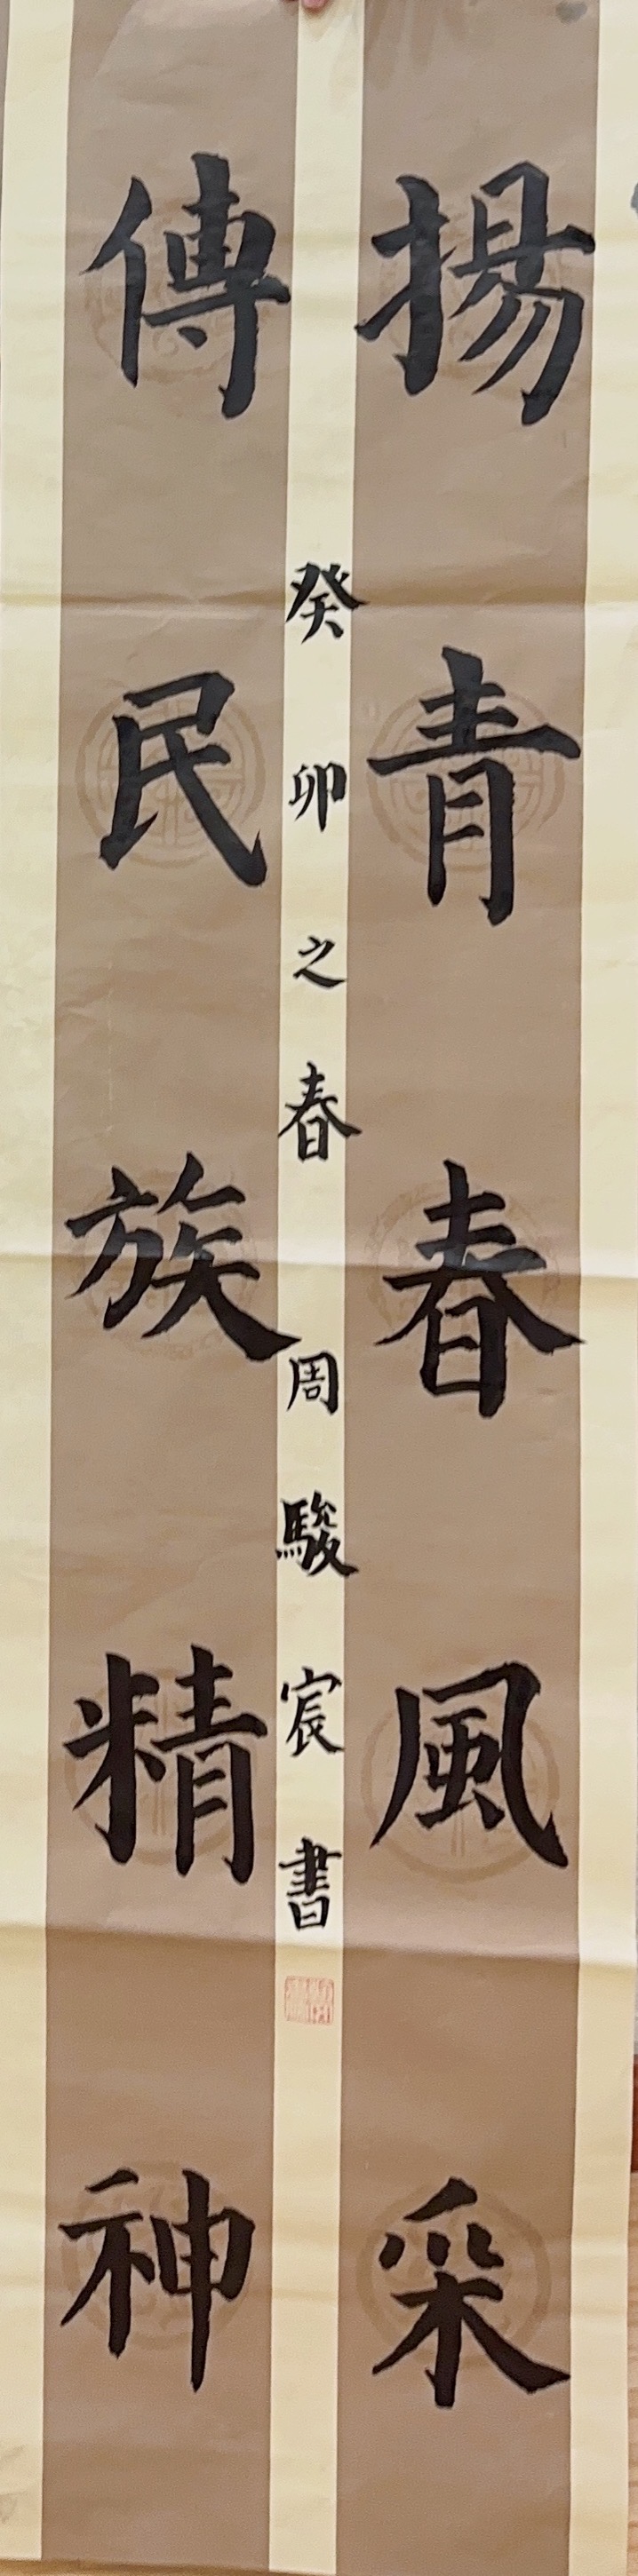 揚青春風采
傳民族精神
癸卯之春周駿宸書